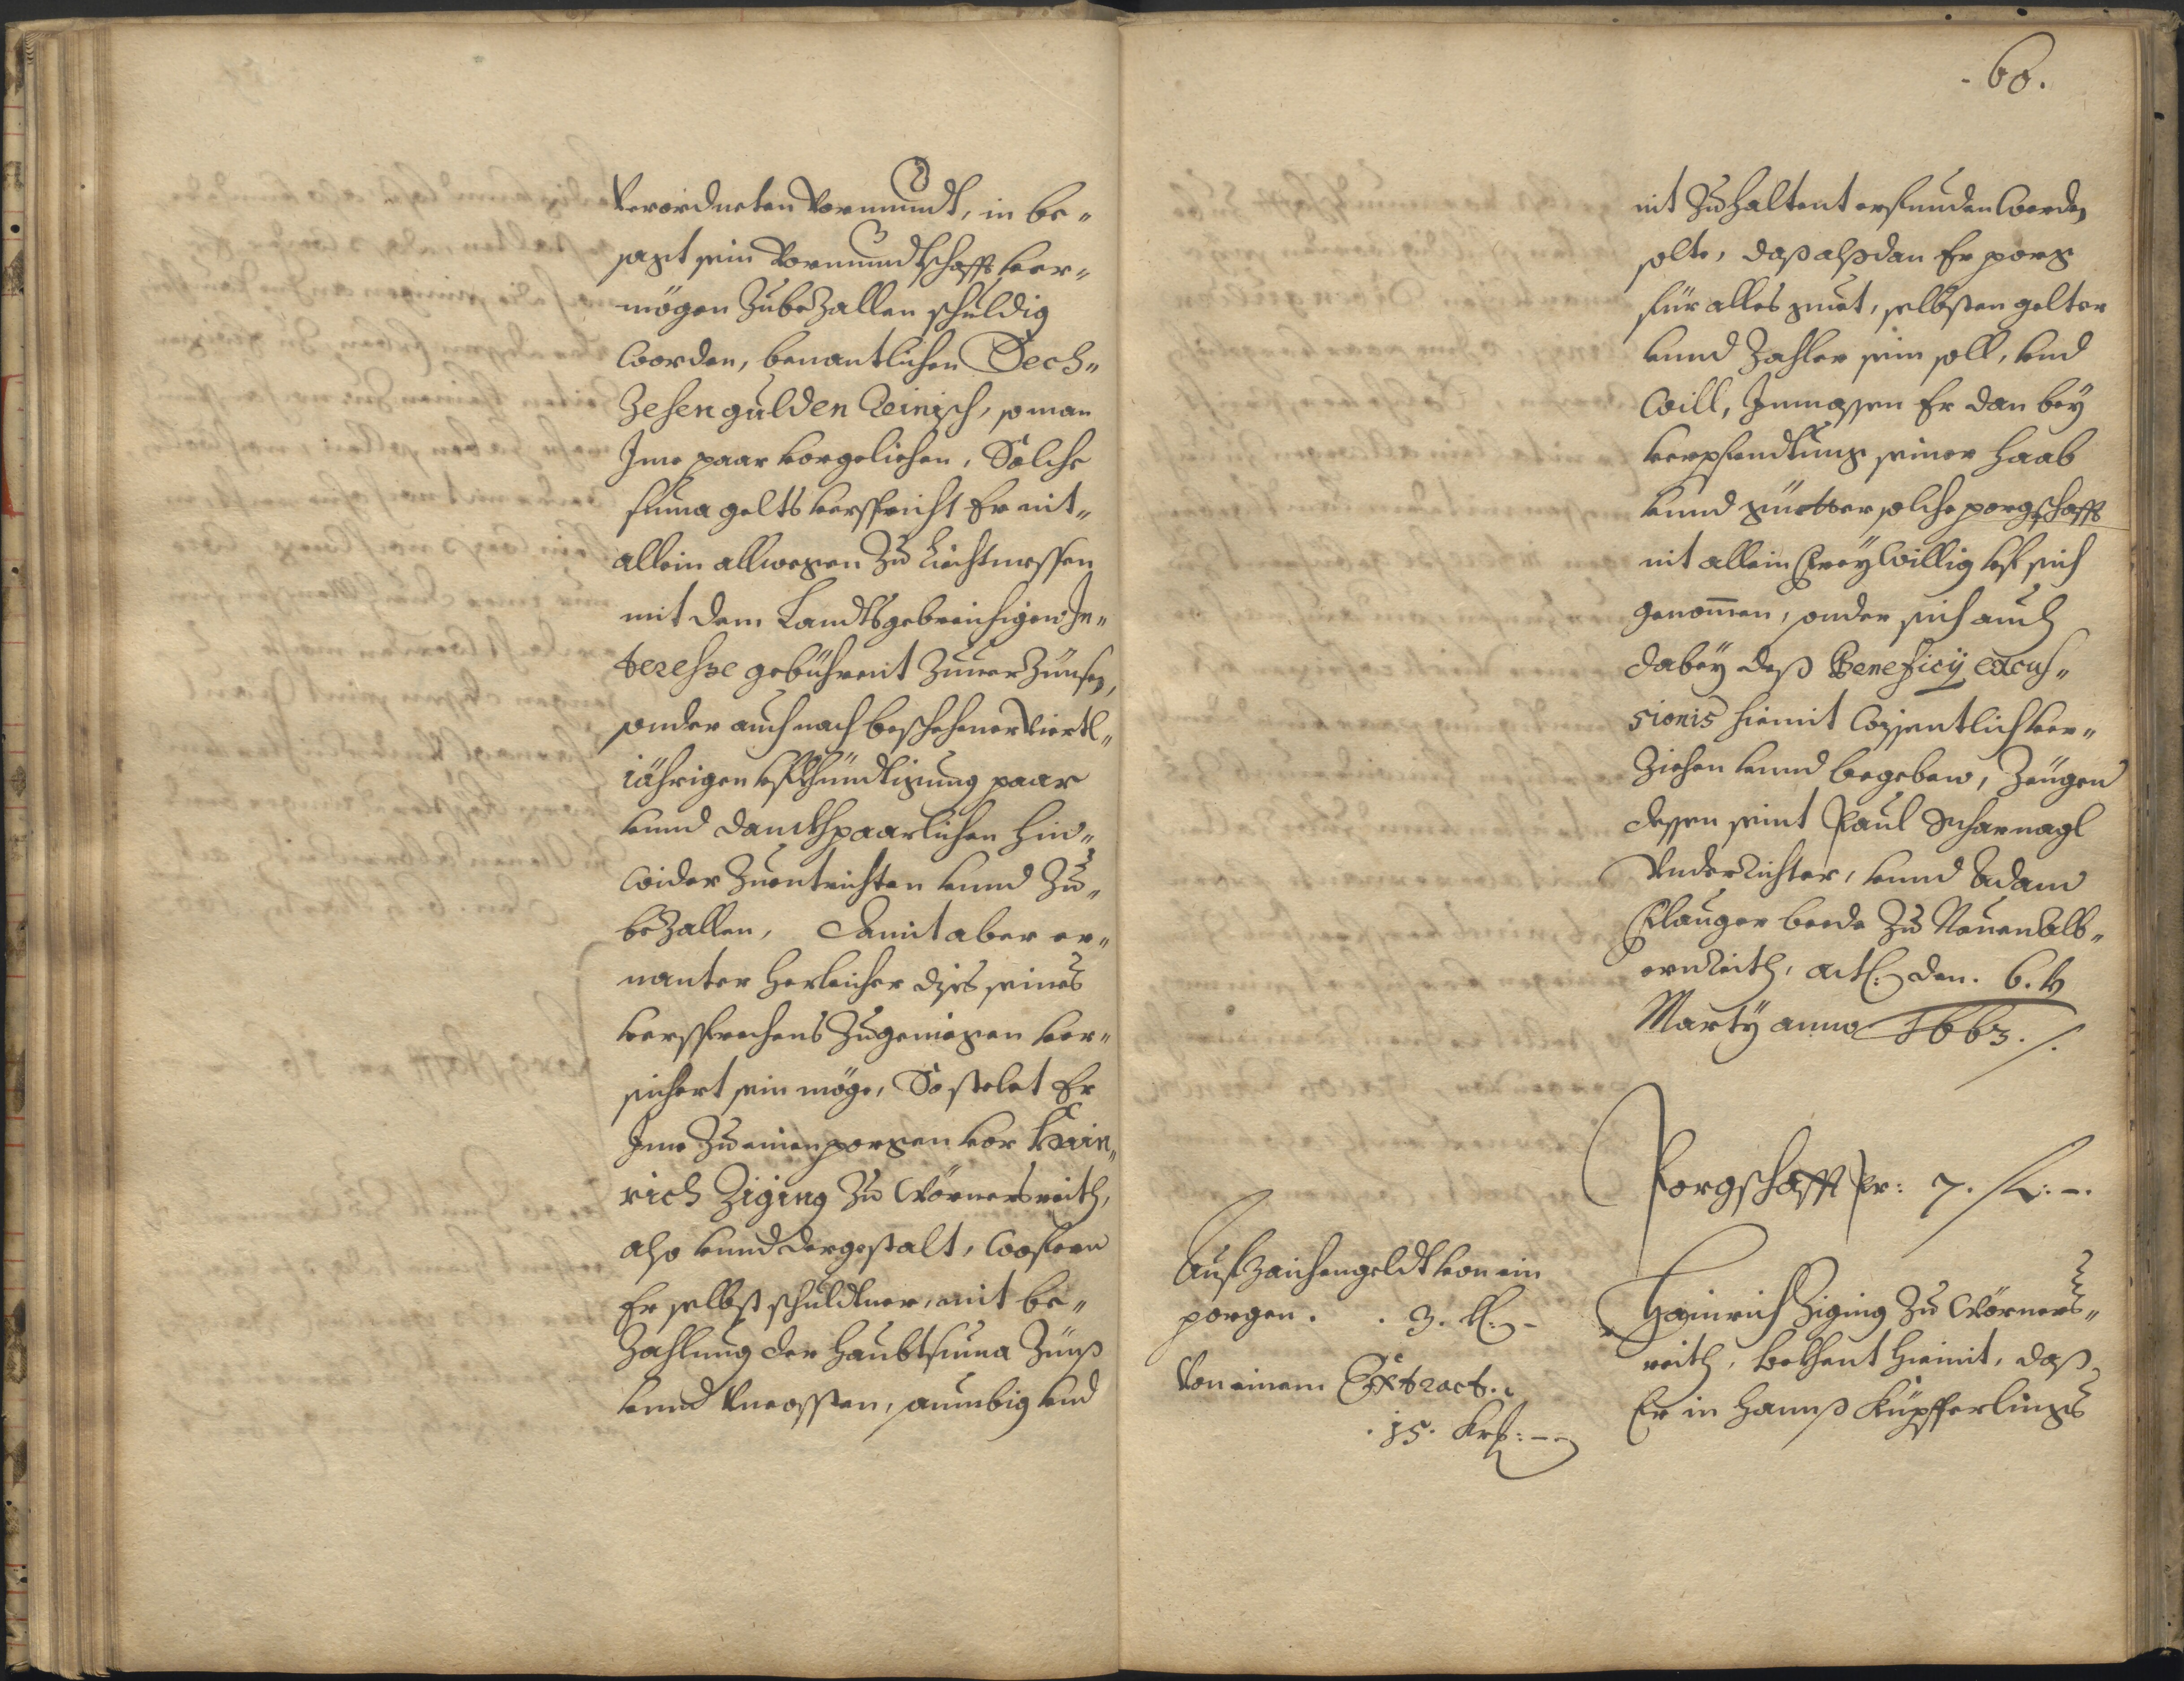 Verordneten Vormundt, in be„
sagt sein Vormundtschafft ver„
mögen Zubezallen schuldig
worden, benantlichen Sech„
Zehen gulden Reinisch, so man
Jme paar vorgeliehen, Solche
suma gelts verspricht Er nit„
allein allwegen Zu Liechtmessen
mit dem Landtsgebreichigen In„
teresse gebührent Zuuerzünsen,
sonder auch nach beschehener Viertl„
iährigen vfkhündtigung paar
vnnd danckhpaarlichen hin„
wider Zuentrichten vnnd Zu„
bezallen, Damit aber er„
nanter herleicher diss seines
versprechens Zugeniessen ver„
sichert sein möge, So stelet Er
Jme Zu einen porgen vor Hain„
rich Ziging Zu Wörnersreith,
also vnnd dergestalt, wofern
Er selbst schuldtner, mit be„
Zahlung der haubtsuma Zünß
vnnd Vncossten, saumbig vnd
60.
nit Zuhaltent erfunden werden
solte, daß alßdan Er porg
für alles guet, selbsten gelter
vnnd Zahler sein soll, vnd
will, Inmassen Er dan bey
verpfendtung seiner Haab
vnnd güetter solche porgschafft
nit allein freywillig vf sich
genom̄en, sonder sich auch
dabey deß Beneficij excus„
sionis hiemit wissentlich ver„
Ziehen vnnd begeben, Zeugen
dessen seint Paul Scharnagl
Vnderrichter, vnnd Adam
Planger beede Zu Neuenalb„
ernreith, act. den. 6.
Martÿ anno 1663./.
Porgschafft pr: 7. fl.–.
Aufzaichengeldt von ein
porgen. . 3. kr.–
Von einem Extract.
. 15. Kr:–.
Hainrich Ziging Zu Wörners„
reith, bekhent hiemit, daß
Er in Hannß Küpfferlings